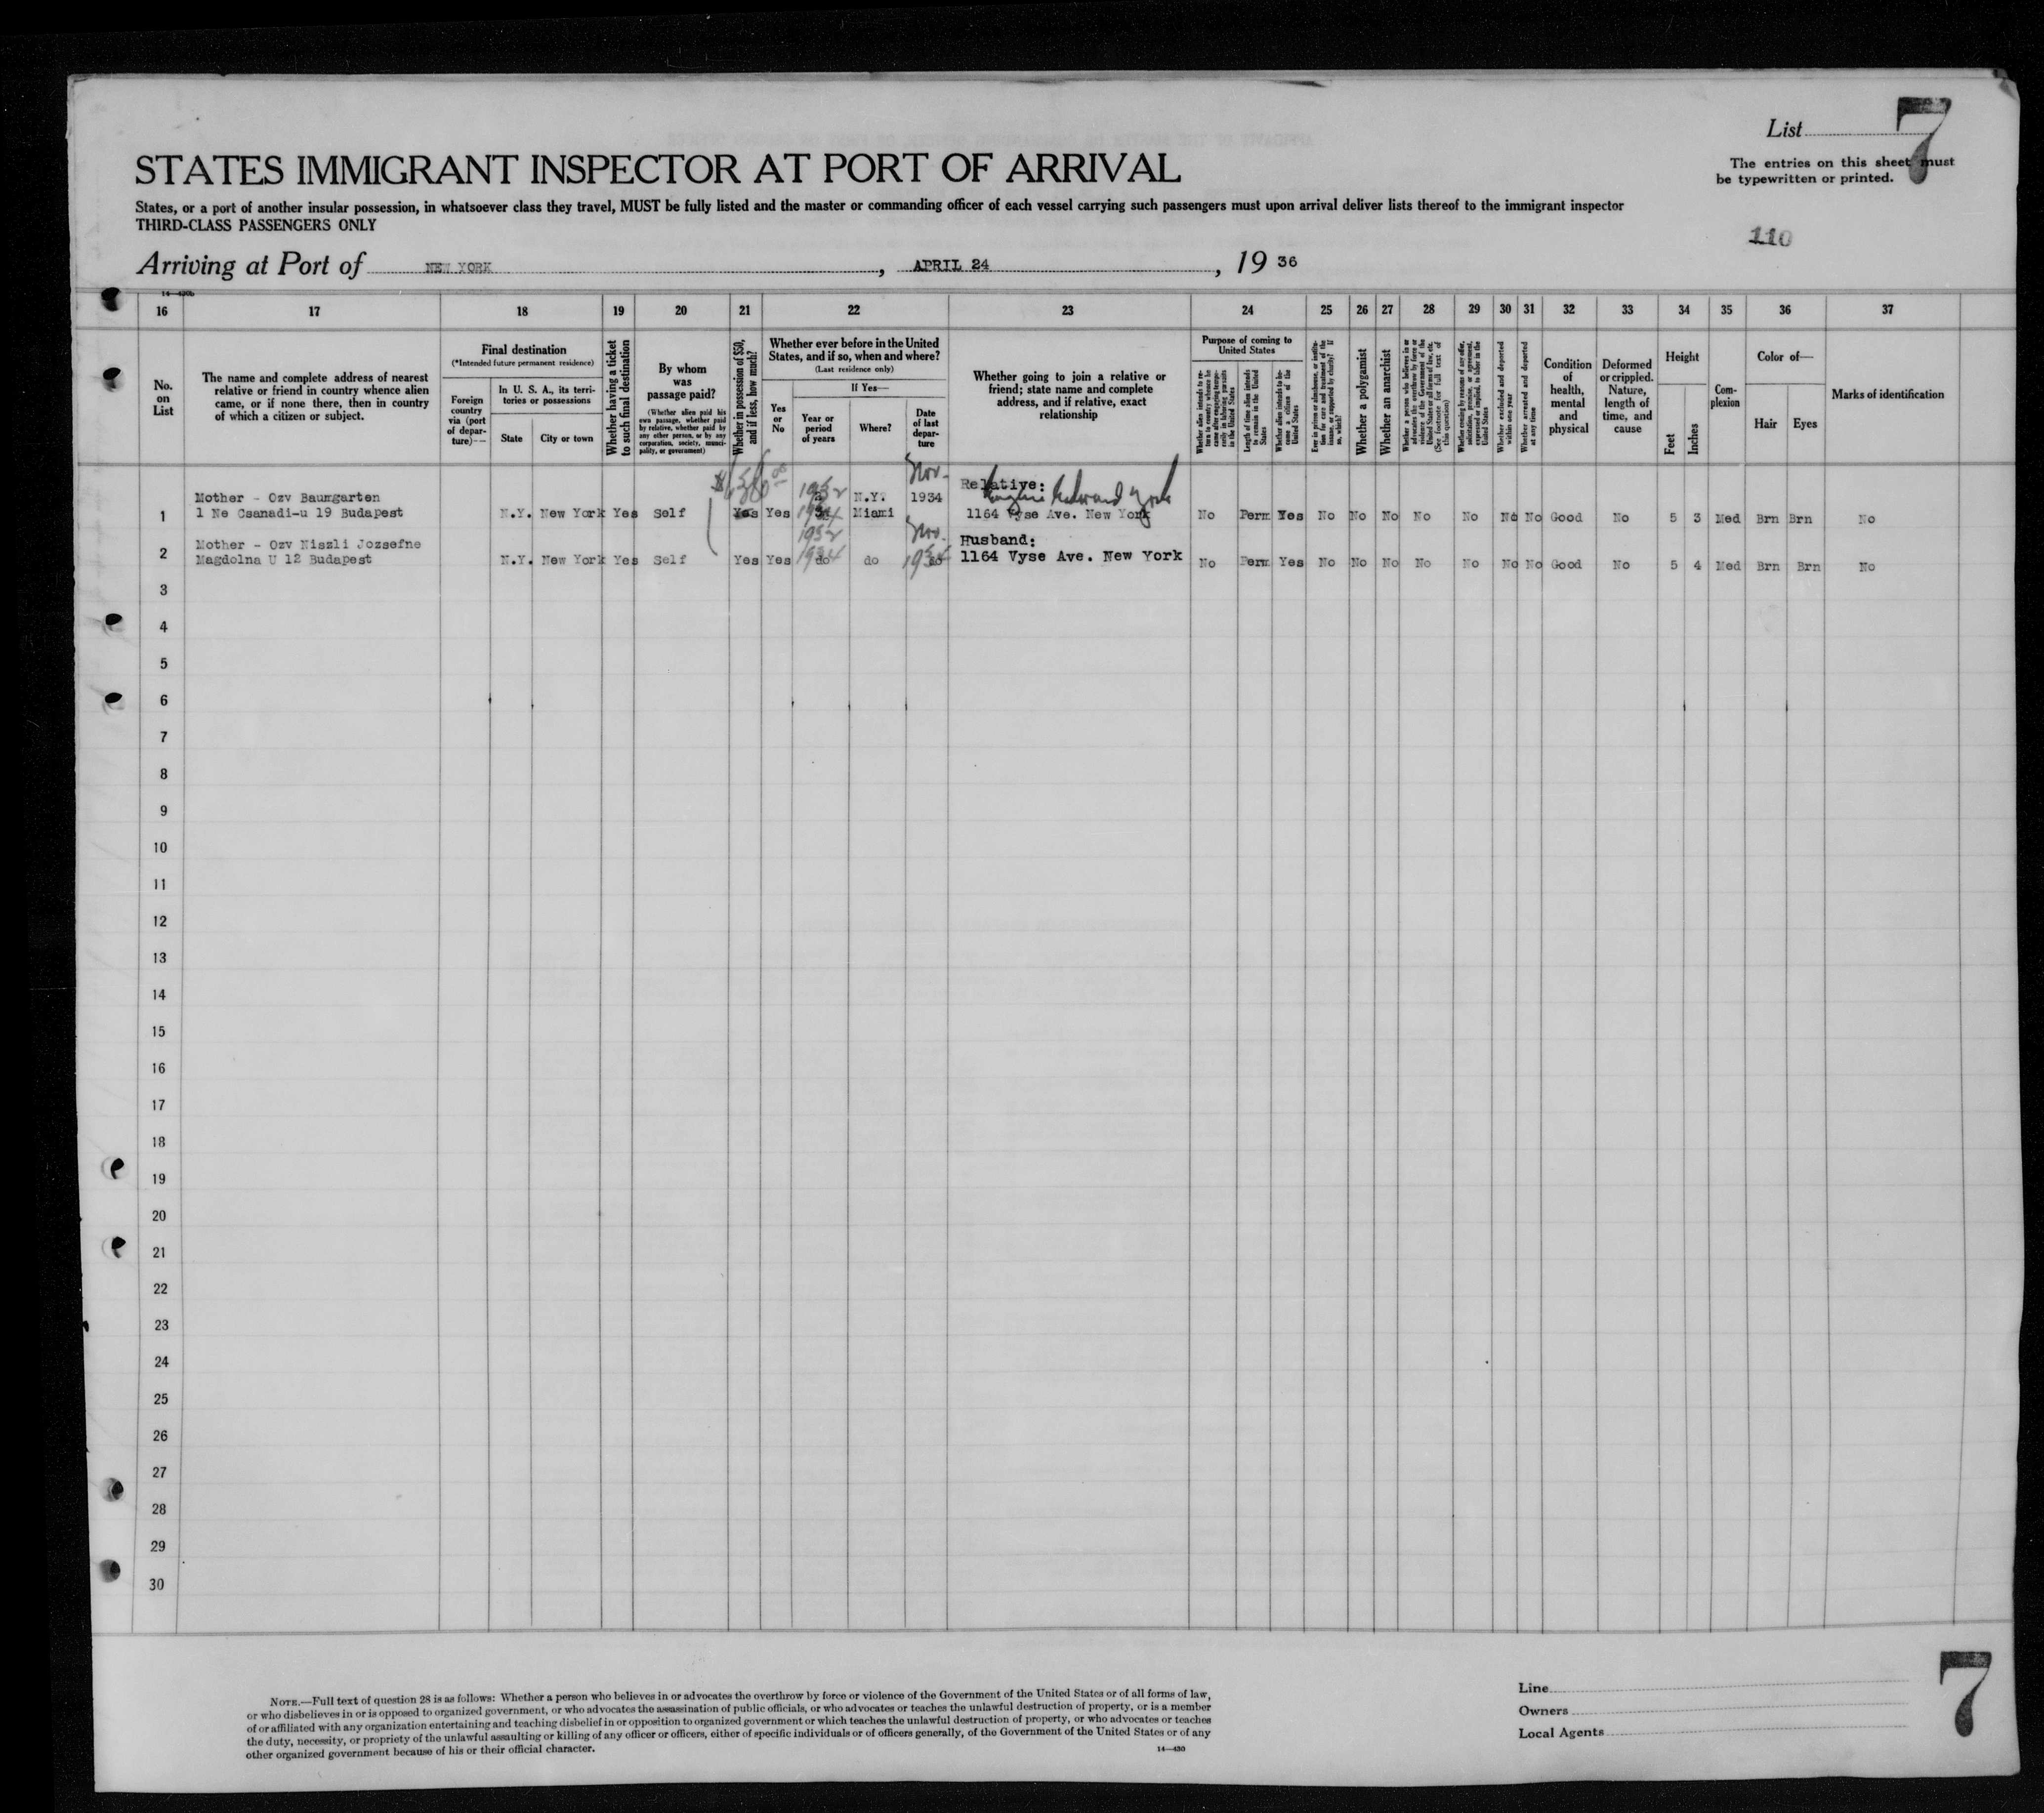 List 7
The entries on this sheet must
be typewritten or printed.
STATES IMMIGRANT INSPECTOR AT PORT OF ARRIVAL
States, or a port of another insular possession, in whatsoever class they travel, MUST be fully listed and the master or commanding officer of each vessel carrying such passengers must upon arrival deliver lists thereof to the immigrant inspector
THIRD-CLASS PASSENGERS ONLY
110
Arriving at Port of NEW YORK, APRIL 24, 19 36
14—430b
16 17 18 19 20 21 22 23 24 25 26 27 28 29 30 31 32 33 34 35 36 37
No.
on
List
The name and complete address of nearest
relative or friend in country whence alien
came, or if none there, then in country
of which a citizen or subject.
Final destination
(*Intended future permanent residence)
Foreign
country
via (port
of depar-
ture)—
In U. S. A., its terri-
tories or possessions
State
City or town
Whether having a ticket
to such final destination
By whom
was
passage paid?
(Whether alien paid his
own passage, whether paid
by relative, whether paid by
any other person, or by any
corporation, society, munici-
pality, or government)
Whether in possession of $50,
and if less, how much?
Whether ever before in the United
States, and if so, when and where?
(Last residence only)
Yes
or
No
If Yes—
Year or
period
of years
Where?
Date
of last
depar-
ture
Whether going to join a relative or
friend; state name and complete
address, and if relative, exact
relationship
Purpose of coming to
United States
Whether alien intends to re-
turn to country whence he
came after engaging tempo-
rarily in laboring pursuits
in the United States
Length of time alien intends
to remain in the United
States
Whether alien intends to be-
come a citizen of the
United States
Ever in prison or almshouse, or institu-
tion for care and treatment of the
insane, or supported by charity? If
so, which?
Whether a polygamist
Whether an anarchist
Whether a person who believes in or
advocates the overthrow by force or
violence of the Government of the
United States or all forms of law, etc.
(See footnote for full text of
this question)
Whether coming by reason of any offer,
solicitation, promise, or agreement,
expressed or implied, to labor in the
United States
Whether excluded and deported
within one year
Whether arrested and deported
at any time
Condition
of
health,
mental
and
physical
Deformed
or crippled.
Nature,
length of
time, and
cause
Height
Feet
Inches
Com-
plexion
Color of—
Hair
Eyes
Marks of identification
Nov.
Mother - Ozv Baumgarten 1932 N.Y. 1934 Relative:
1 1 Ne Csanadi-u 19 Budapest N.Y. New York Yes Self Yes Yes 1934 Miami 1164 Vyse Ave. New York No Perm Yes No No No No No No No Good No 5 3 Med Brn Brn No
Mother - Ozv Niszli Jozsefne 1932 Nov. Husband:
2 Magdolna U 12 Budapest N.Y. New York Yes Self Yes Yes 1934 do do 1934 1164 Vyse Ave. New York No Perm Yes No No No No No No No Good No 5 4 Med Brn Brn No
3
4
5
6
7
8
9
10
11
12
13
14
15
16
17
18
19
20
21
22
23
24
25
26
27
28
29
30
NOTE.—Full text of question 28 is as follows: Whether a person who believes in or advocates the overthrow by force or violence of the Government of the United States or of all forms of law,
or who disbelieves in or is opposed to organized government, or who advocates the assassination of public officials, or who advocates or teaches the unlawful destruction of property, or is a member
of or affiliated with any organization entertaining and teaching disbelief in or opposition to organized government or which teaches the unlawful destruction of property, or who advocates or teaches
the duty, necessity, or propriety of the unlawful assaulting or killing of any officer or officers, either of specific individuals or of officers generally, of the Government of the United States or of any
other organized government because of his or their official character.
14—430
Line
Owners
Local Agents
7